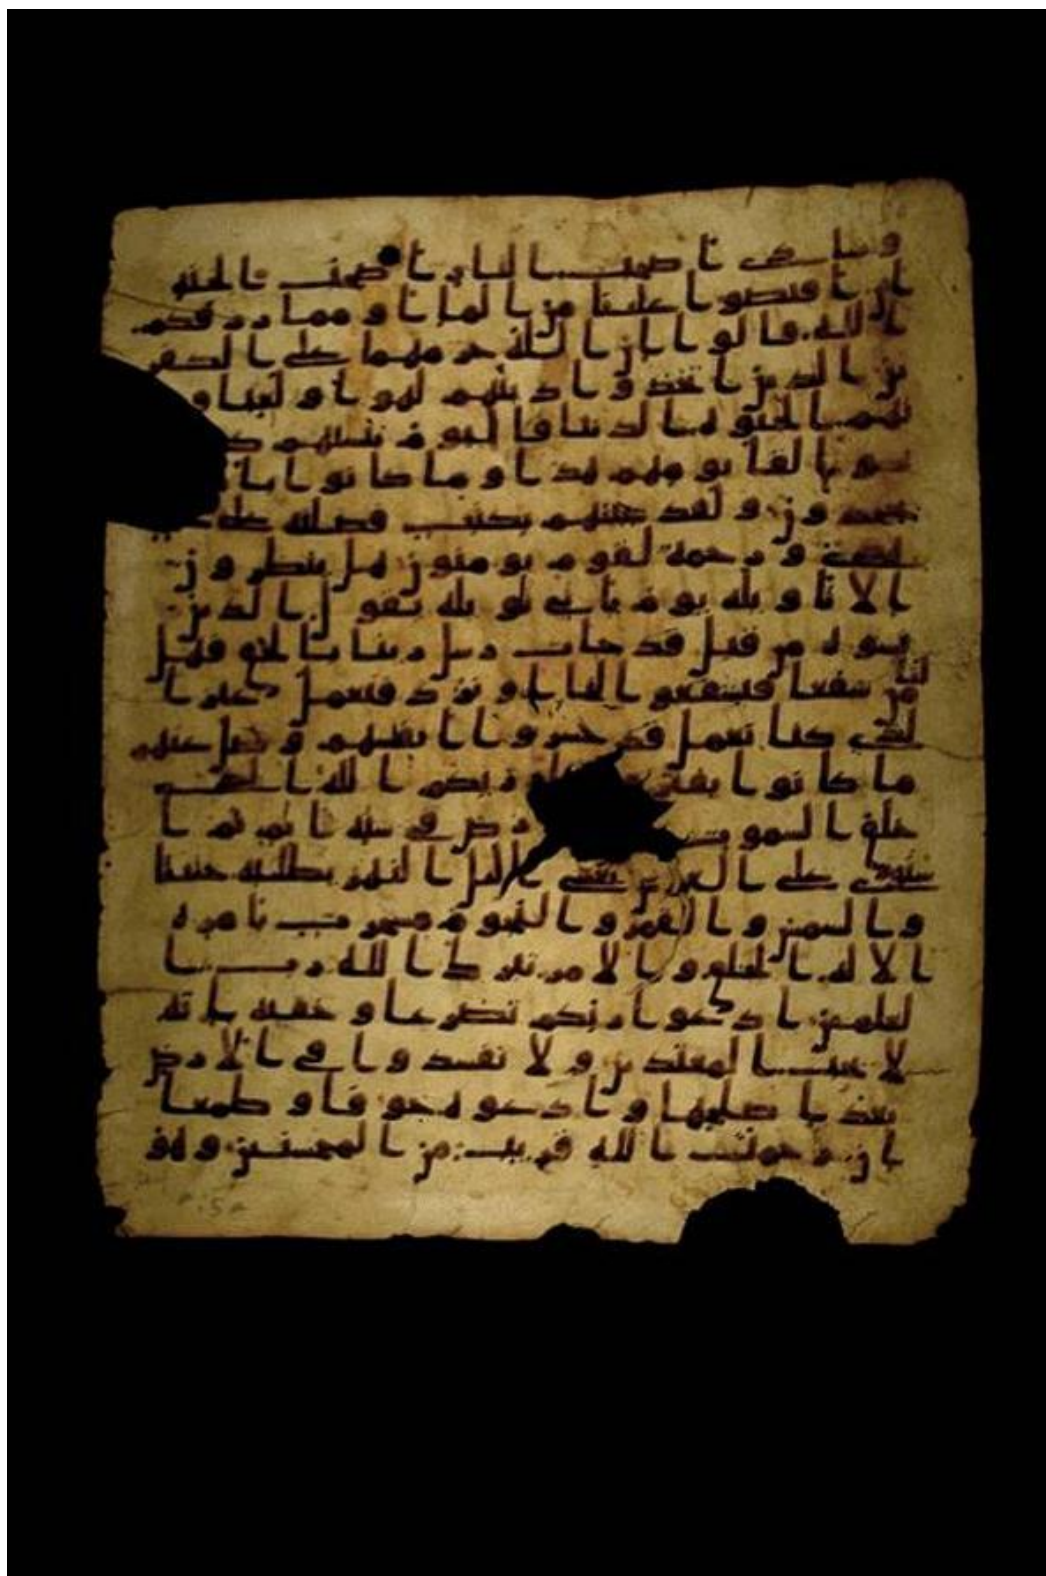 ونادى اصحب النار اصحب الجنة
ان افيضوا علينا من الما او مما رزقكم
الله قالوا ان الله حرمهما على الكفر
ين الذين اتخذوا دينهم لهوا ولعبا و
تهم الحيوة الدنيا فاليوم ننسيهم ك
نسوا لقا يومهم هذا وما كانوا با
يجحدون ولقد جئنهم بكتب فصلنه على
هدى ورحمة لقوم يومنون هل ينظرون
الا تاويله يوم ياتي تاويله يقول الذين
نسوه من قبل قد جات رسل ربنا بالحق فهل
لنا من شفعا فيشفعوا لنا او نرد فنعمل غير ا
لذي كنا نعمل قد خسروا انفسهم وضل عنهم
ما كانوا يفتر ربكم الله الذي
خلق السموت رض في ستة ايام ثم ا
ستوى على العرش يغشي اليل النهر يطلبه حثيثا
والشمس والقمر والنجوم مسخرت بامره
الا له الخلق والامر تبرك الله رب ا
لعلمين ادعوا ربكم تضرعا وخفية انه
لا يحب المعتدين ولا تفسدوا في الارض
بعد اصلحها وادعوه خوفا وطمعا
ان رحمت الله قريب من المحسنين وهو